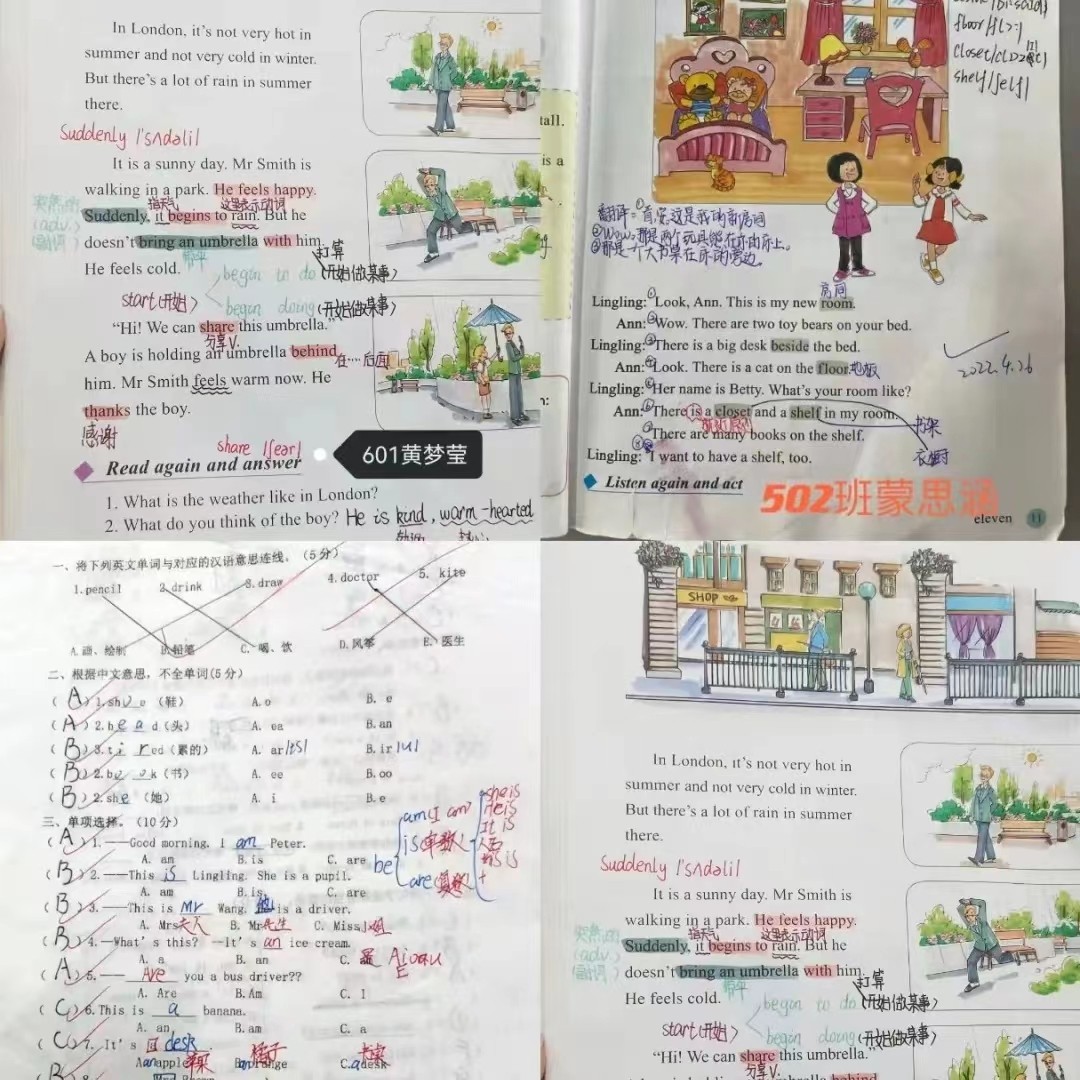 In London, it's not very hot in
summer and not very cold in winter.
But there's a lot of rain in summer
there.
Suddenly /'sʌdəli/
It is a sunny day. Mr Smith is
walking in a park. He feels happy.
指天气 这里表示动词
Suddenly, it begins to rain. But he
突然的
(adv.)
(副词)
doesn't bring an umbrella with him.
He feels cold.
打算
began to do (开始做某事)
start(开始)
began doing (开始做某事)
"Hi! We can share this umbrella."
分享 V.
A boy is holding an umbrella behind
在…后面
him. Mr Smith feels warm now. He
thanks the boy.
感谢
share /ʃeər/
601黄梦莹
Read again and answer
1. What is the weather like in London?
2. What do you think of the boy? He is kind, warm-hearted
tall.
is a
floor/flɔ:/
shelf/ʃelf/
翻译:①看,安,这是我的新房间
②Wow,那是两个玩具熊在你的床上。
③那是一个大书桌在你的旁边。
房间
Lingling: ①Look, Ann. This is my new room.
Ann: ②Wow. There are two toy bears on your bed.
Lingling: ③There is a big desk beside the bed.
Ann: ④Look. There is a cat on the floor.地板
Lingling: ⑤Her name is Betty. What's your room like?
Ann: ⑥There is a closet and a shelf in my room.
书架
⑦There are many books on the shelf.
衣橱
Lingling: ⑧I want to have a shelf, too.
2022.4.26
Listen again and act
502班蒙思涵
eleven 11
一、将下列英文单词与对应的汉语意思连线。(5分)
1.pencil 2.drink 3.draw 4.doctor 5. kite
A.画、绘制 B.铅笔 C. 喝、饮 D.风筝 E. 医生
二、根据中文意思,不全单词(5分)
( A )1.sh o e (鞋) A.o B. e
( A )2.h e a d(头) A. ea B.an
( B )3.t i r ed(累的) A. ar B.ir
( B )2.b o o k(书) A. ee B.oo
( B )2.sh e (她) A. i B.e
三、单项选择。(10分)
be am(I am) is(单数) are(复数)
she is
He is
It is
( A )1.——Good morning. I am Peter.
A. am B.is C. are
( B )2.——This is Lingling. She is a pupil.
A. am B.is C. are
( B )3.——This is Mr Wang. 他 is a driver.
A. Mrs夫人 B. Mr先生 C. Miss小姐
( B )4.—What's this? —It's an ice cream.
A. a B. an C.
( A )5.—— Are you a bus driver??
A. Are B.Am C. I
( C )6.This is a banana.
A. an B.am C. a
( C )7. It's desk
A.an apple苹果 B.an orange橘子 C.a desk桌
SHOP
In London, it's not very hot in
summer and not very cold in winter.
But there's a lot of rain in summer
there.
Suddenly /'sʌdəli/
It is a sunny day. Mr Smith is
walking in a park. He feels happy.
指天气 这里表示动词
Suddenly, it begins to rain. But he
突然的
(adv.)
(副词)
doesn't bring an umbrella with him.
He feels cold.
打算
began to do (开始做某事)
start(开始)
began doing (开始做某事)
"Hi! We can share this umbrella."
分享 V.